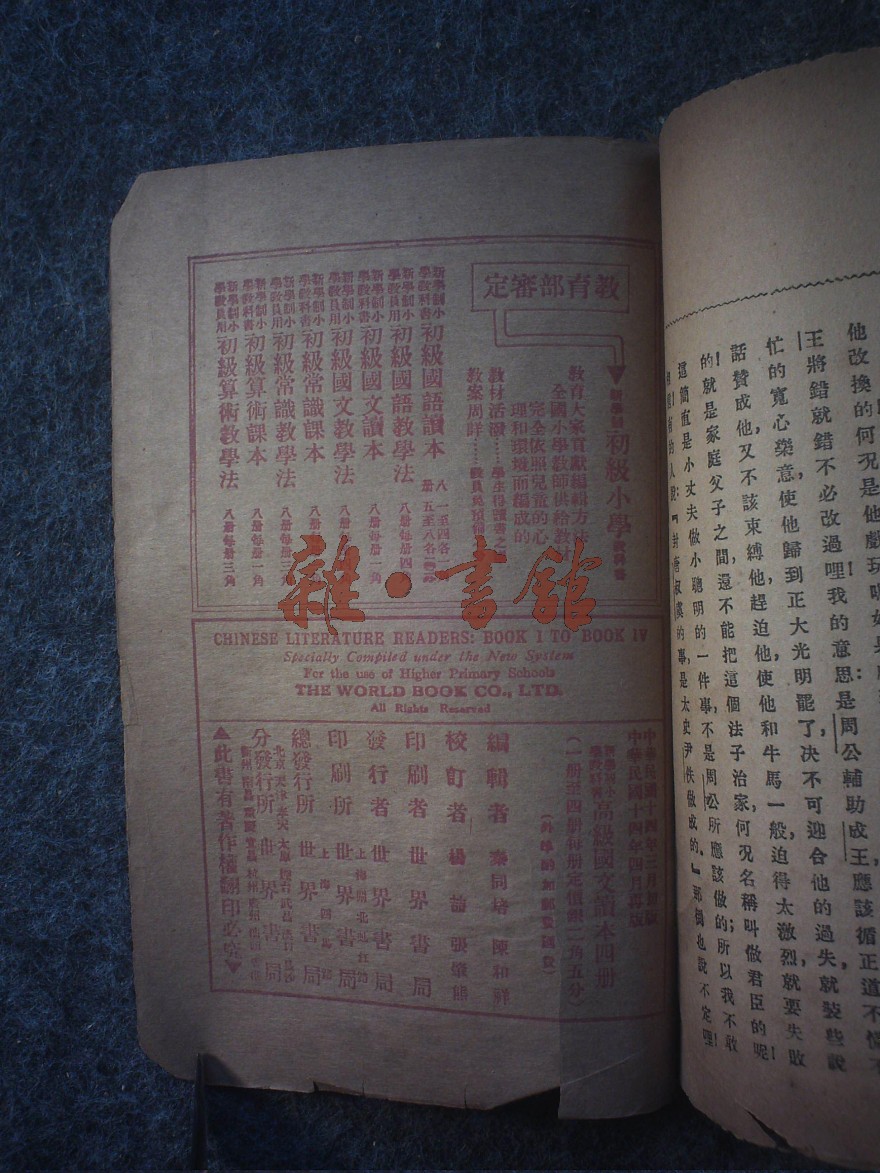 教育部審定
新學制初級小學教科書
教育大家貢獻編輯方法
全國小學教師供給教材
完全依照兒童的心
理和環境而編成的
教材活潑……學生得讀書之
教案周詳……教員免預備
新學制小學教科書初級國語讀本
新學制小學教員用初級國語教學法 八册每册四
新學制小學教科書初級國文讀本 八册每册一角
新學制小學教員用初級國文教學法 八册每册
新學制小學教科書初級常識課本 八册
新學制小學教員用初級常識教學法 八册每册三
新學制小學教科書初級算術課本 八册每册一角
新學制小學教員用初級算術教學法 八册每册三角
雜·書館
CHINESE LITERATURE READERS: BOOK I TO BOOK IV
Specially Compiled under the New System
For the use of Higher Primary Schools
THE WORLD BOOK CO., LTD.
All Rights Reserved
中華民國十四年三月初版
中華民國十四年四月再版
新學制小學教科書高級國文讀本四册
(一册至四册每册定價銀二角五分)
(外埠酌加郵費匯費)
編輯者 秦同培 陳和祥
校訂者 楊喆 張
印刷者 世界書局
發行者 世界書局
印刷所 世界書局
總發行所 世界書局
分發行所 世界書局
▲此書有著作權翻印必究▼
他改換的何況是他戲玩呢
王將錯就錯不必改過哩!我的意思:是周公輔助成王,應該循正道不慌不
忙的寬心樂意,使他歸到正大光明罷了,決不可迎合他的過失,就裝些說
話贊成他,又不該束縛他,趕迫他,使他和牛馬一般,迫得太激烈,就要失敗
的!就是家庭父子之間,還不能把這個法子治家,何況名稱叫做君臣的呢!
這簡直是小丈夫做小聰明的一件事,不是周公所應該做的;所以我不敢
的人說:『封唐叔虞的事,是太史尹佚做成的.』那倒也說不定哩!